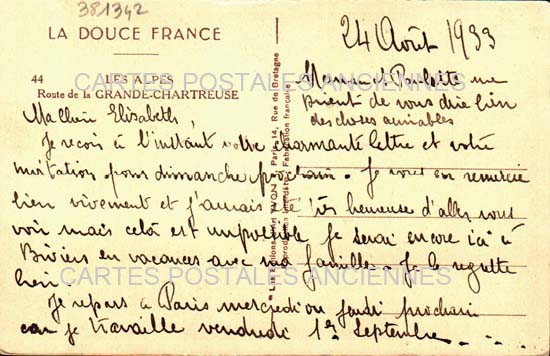 381342
LA DOUCE FRANCE
24 Août 1933
44 LES ALPES
Route de la GRANDE-CHARTREUSE
CARTES POSTALES ANCIENNES
Maman et Paulette me
prient de vous dire bien
des choses aimables
Ma chère Elisabeth,
Je reçois à l'instant votre charmante lettre et votre
invitation pour dimanche prochain. Je vous en remercie
bien vivement et j'aurais été très heureuse d'aller vous
voir mais celà est impossible je serai encore ici à
Biviers en vacances avec ma famille. Je le regrette
bien.
CARTES POSTALES ANCIENNES
Je repars à Paris mercredi ou jeudi prochain
car je travaille vendredi 1er Septembre . . .
Les Editions d'Art YVON Paris 14, Rue de Bretagne
Fabrication française